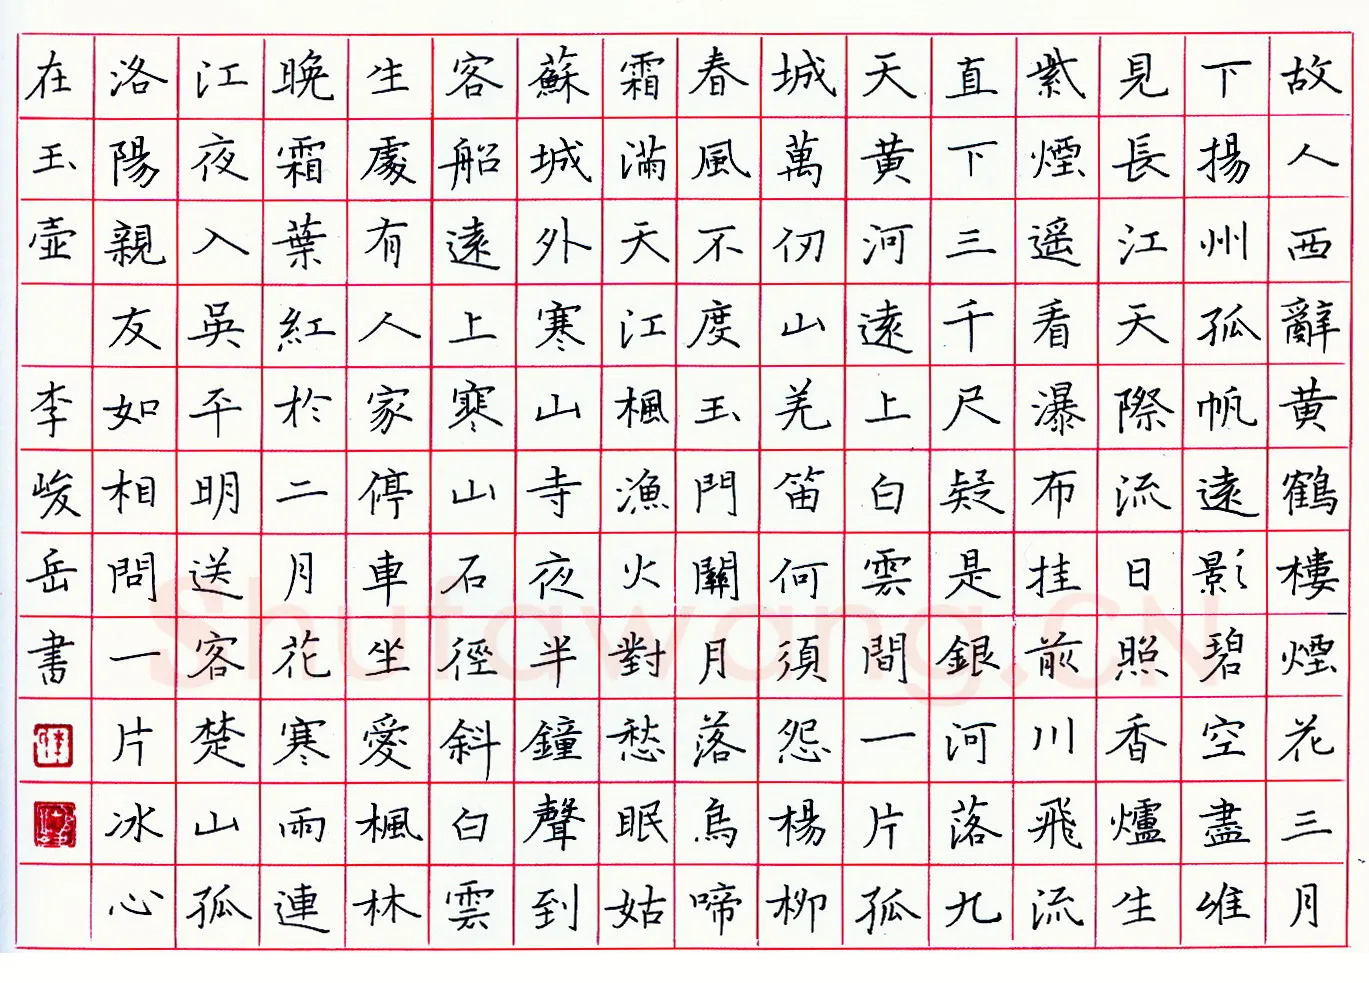 故人西辭黄鶴樓煙花三月
下揚州孤帆遠影碧空盡唯
見長江天際流日照香爐生
紫煙遥看瀑布挂前川飛流
直下三千尺疑是銀河落九
天黄河遠上白雲間一片孤
城萬仞山羌笛何須怨楊柳
春風不度玉門關月落烏啼
霜滿天江楓漁火對愁眠姑
蘇城外寒山寺夜半鐘聲到
客船遠上寒山石徑斜白雲
生處有人家停車坐愛楓林
晚霜葉紅於二月花寒雨連
江夜入吳平明送客楚山孤
洛陽親友如相問一片冰心
在玉壺 李峻岳書
Shufawang.CN